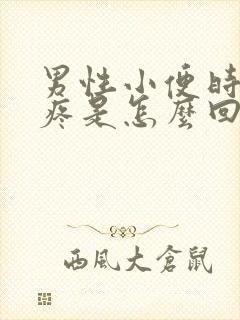 男性小便時
疼是怎麼回
西風大倉鼠